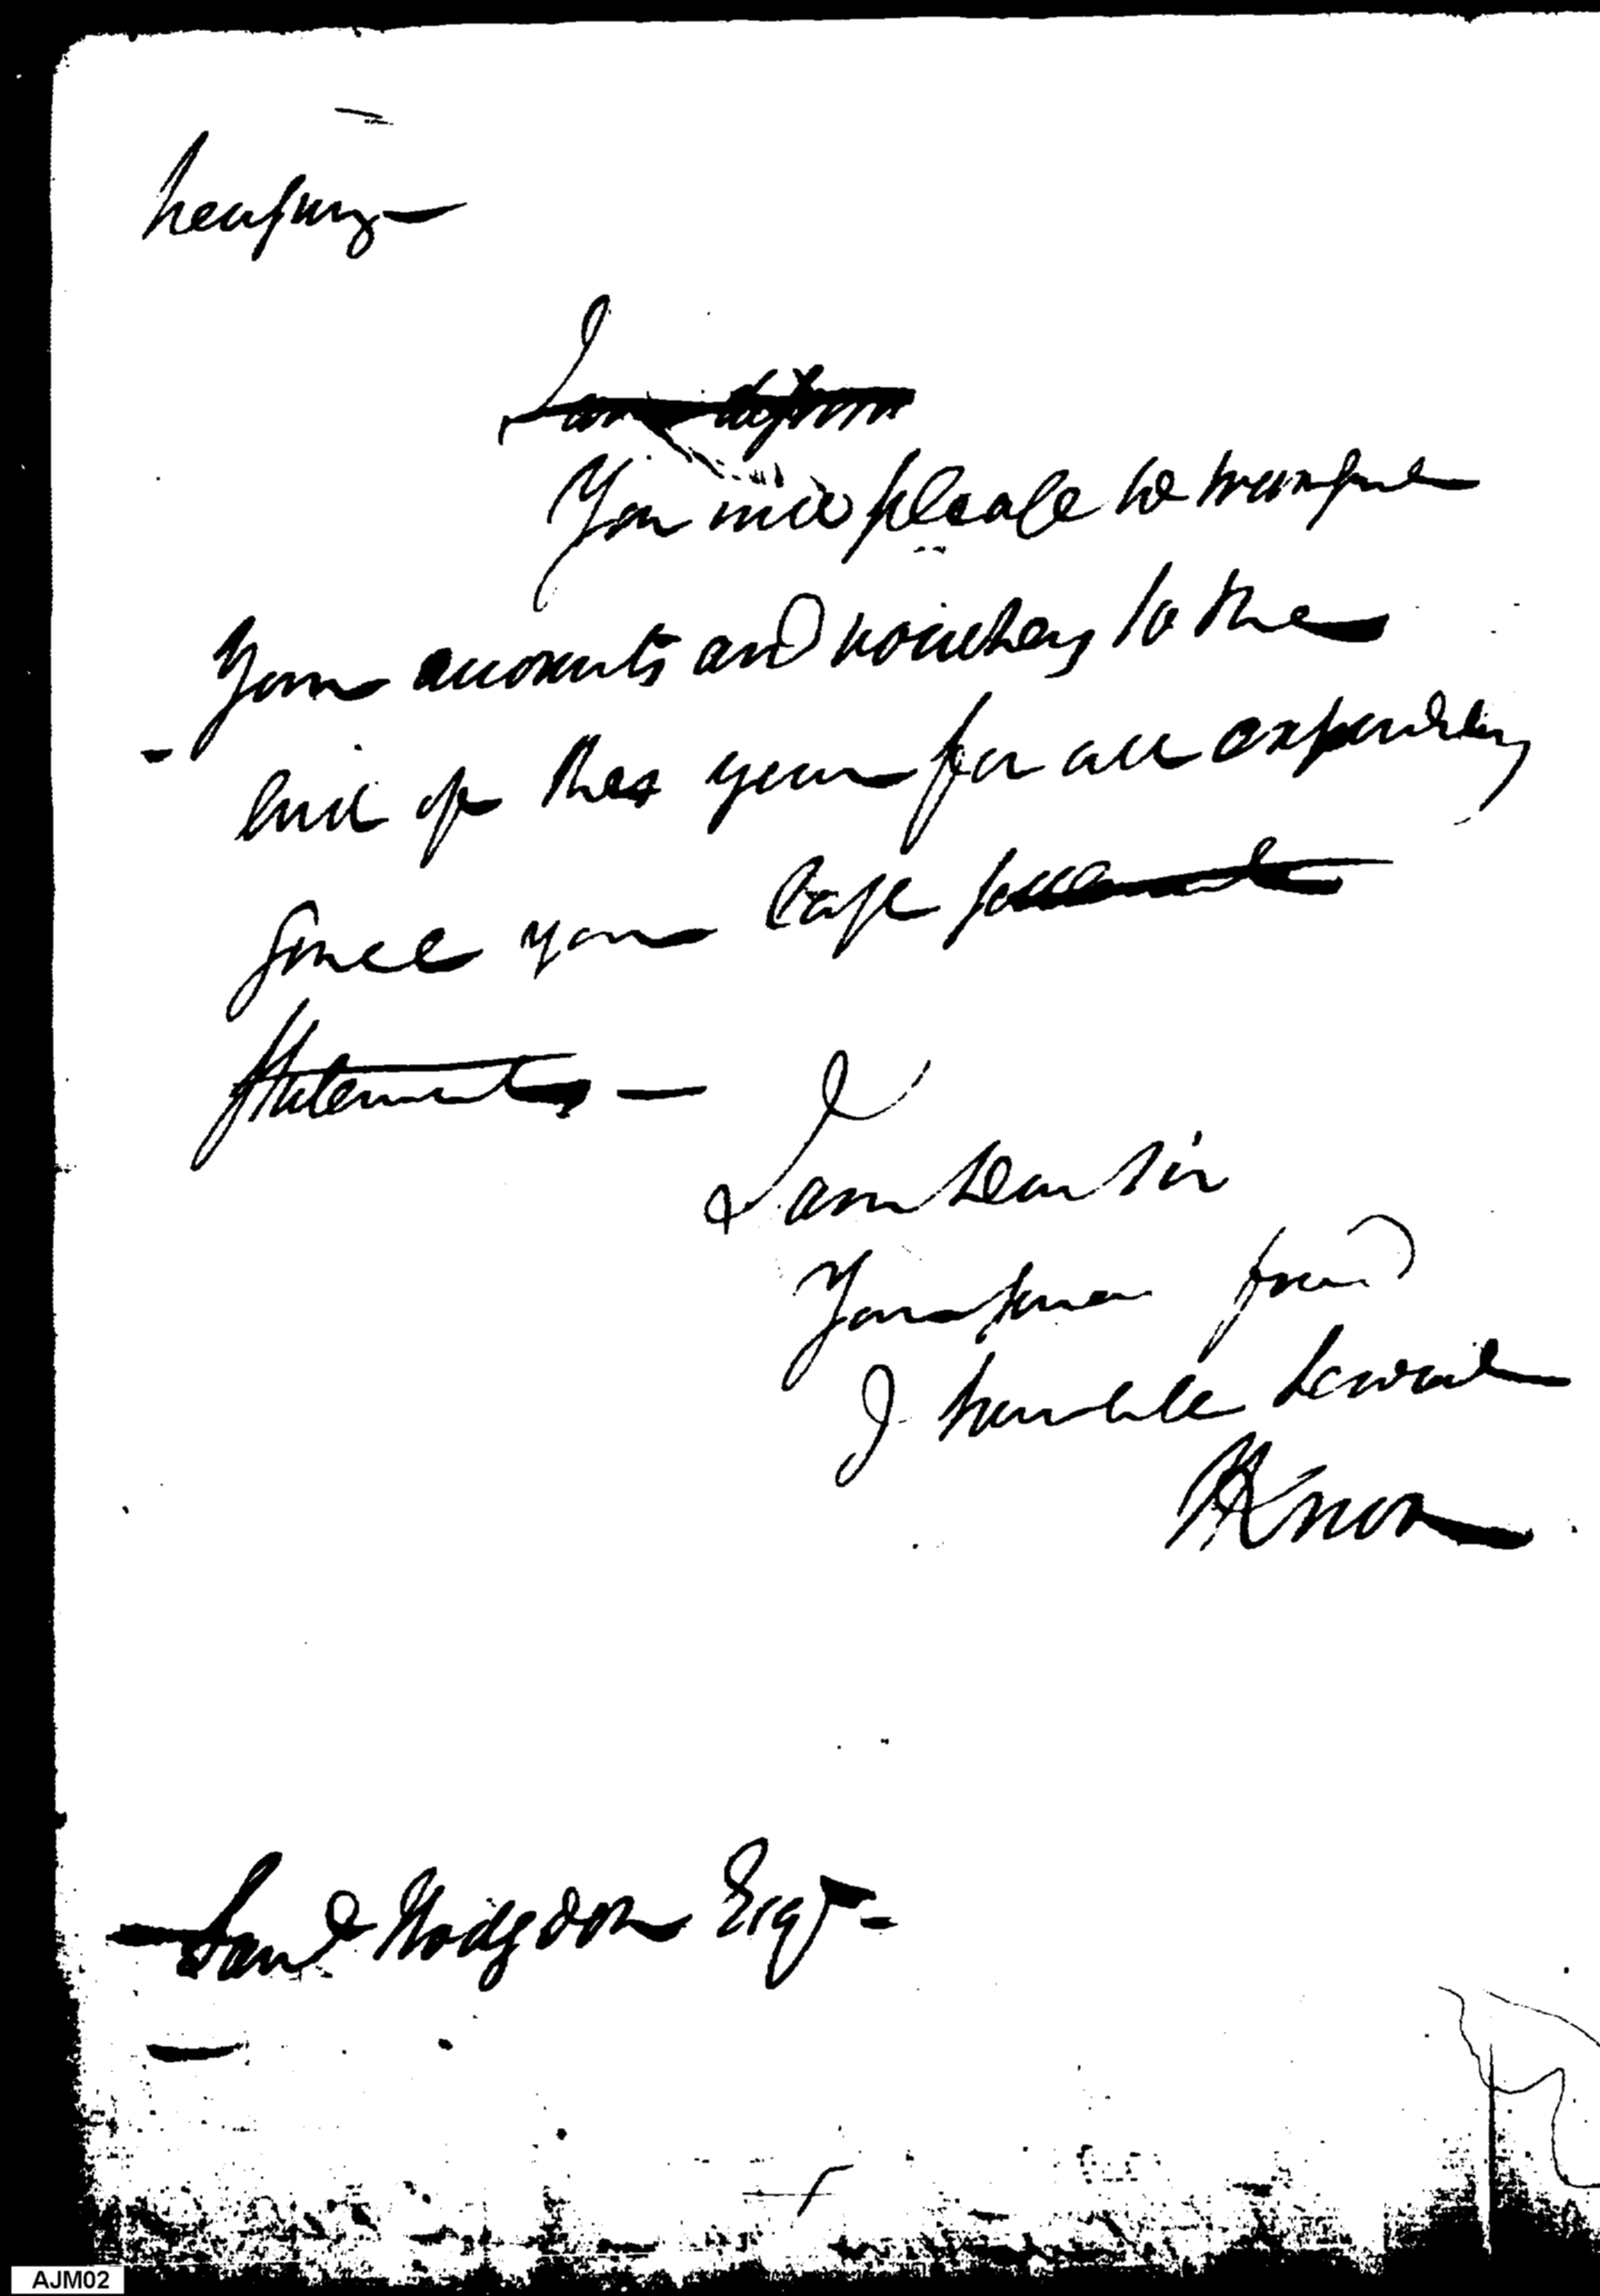 necessary
I am dear sir
You will please to transfer
your accounts and vouchers to the
end of this year for all expenditures
since your last settlement
Statements —
I am dear Sir
Your sincere friend
& humble Servant
HKnox
Saml Hodgdon Esqr
AJM02